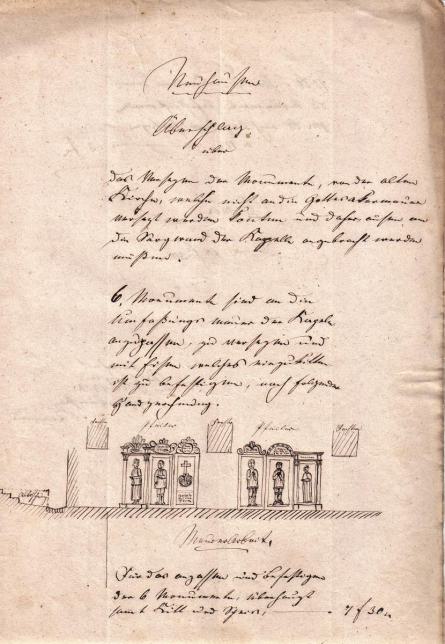 Neuhausen
Überschlag
über
das Versezen der Monumente, von der alten
Kirche, welche nicht an die Gottesakermauer
versezt werden konnten und daher außen an
die Wand der Kapelle angebracht werden
müßen.
6. Monumente sind an die
Umfaßungs mauer der Kapele
anzupassen, zu versezen und
mit Eisen welches einzukitten
ist zu befestigen, nach folgender
Handzeichnung.
Fenster Pfeiler Fenster Pfeiler Fenster
Maurerarbeit,
Für das anpassen und befestigen
der 6 Monumente, überhaupt
samt Kitt und Speis, 7 f 30